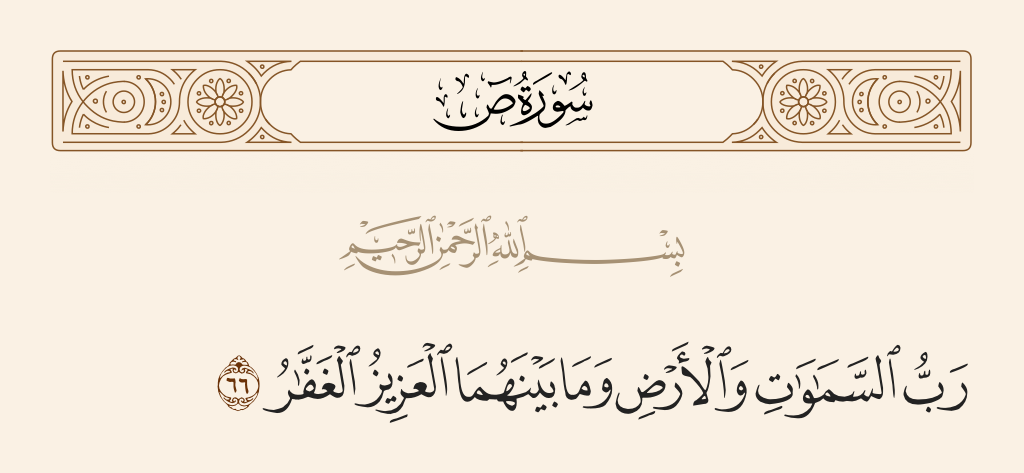 سُورَةُ صٓ
بِسْمِ ٱللَّهِ ٱلرَّحْمَٰنِ ٱلرَّحِيمِ
رَبُّ ٱلسَّمَٰوَٰتِ وَٱلْأَرْضِ وَمَا بَيْنَهُمَا ٱلْعَزِيزُ ٱلْغَفَّٰرُ ٦٦